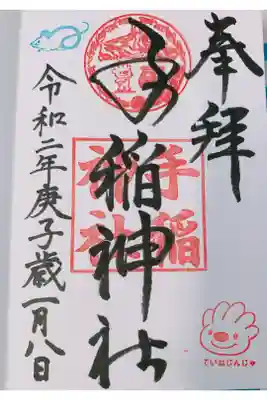 奉拝
手稲神社
手稲神社
令和二年庚子歳一月八日
ていねじんじゃ